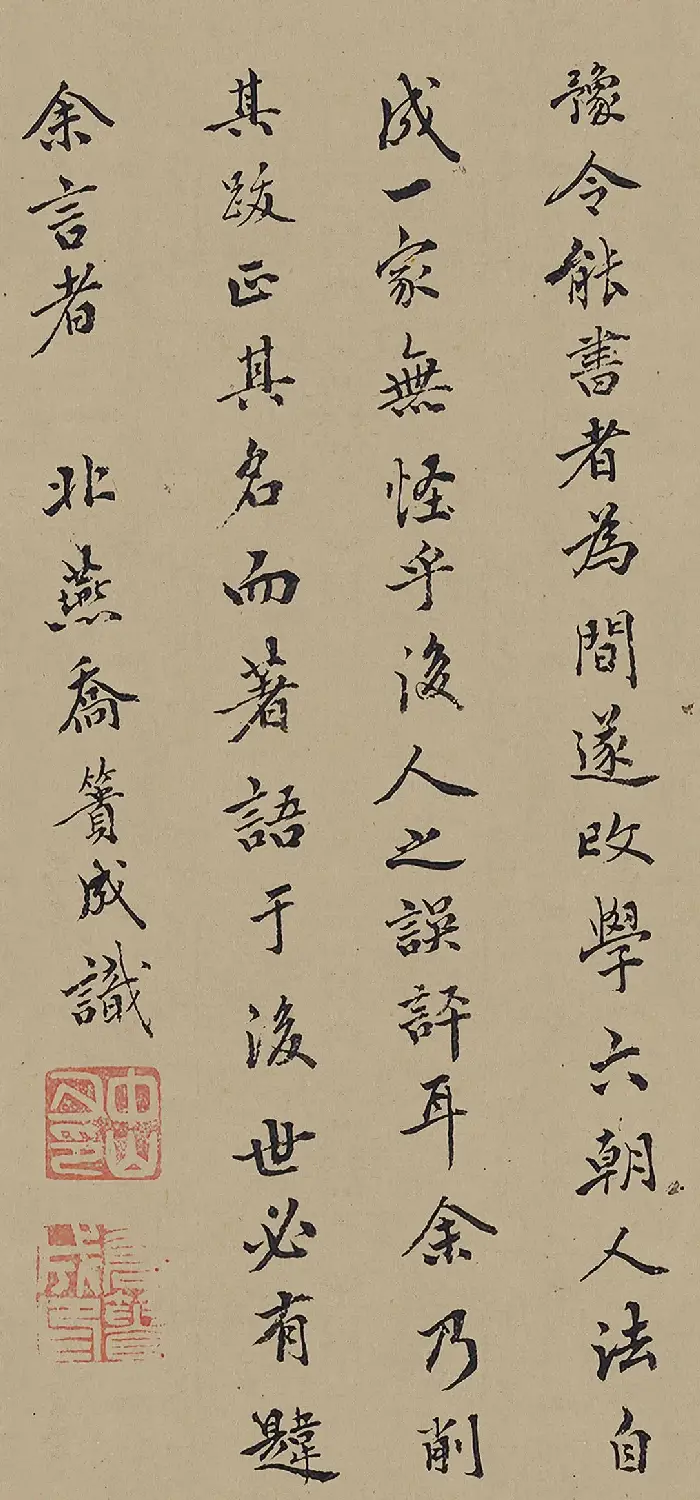 豫令能書者為間遂改學六朝人法自
成一家無怪乎後人之誤評耳余乃削
其跋正其名而著語于後世必有韙
余言者 北燕喬簣成識